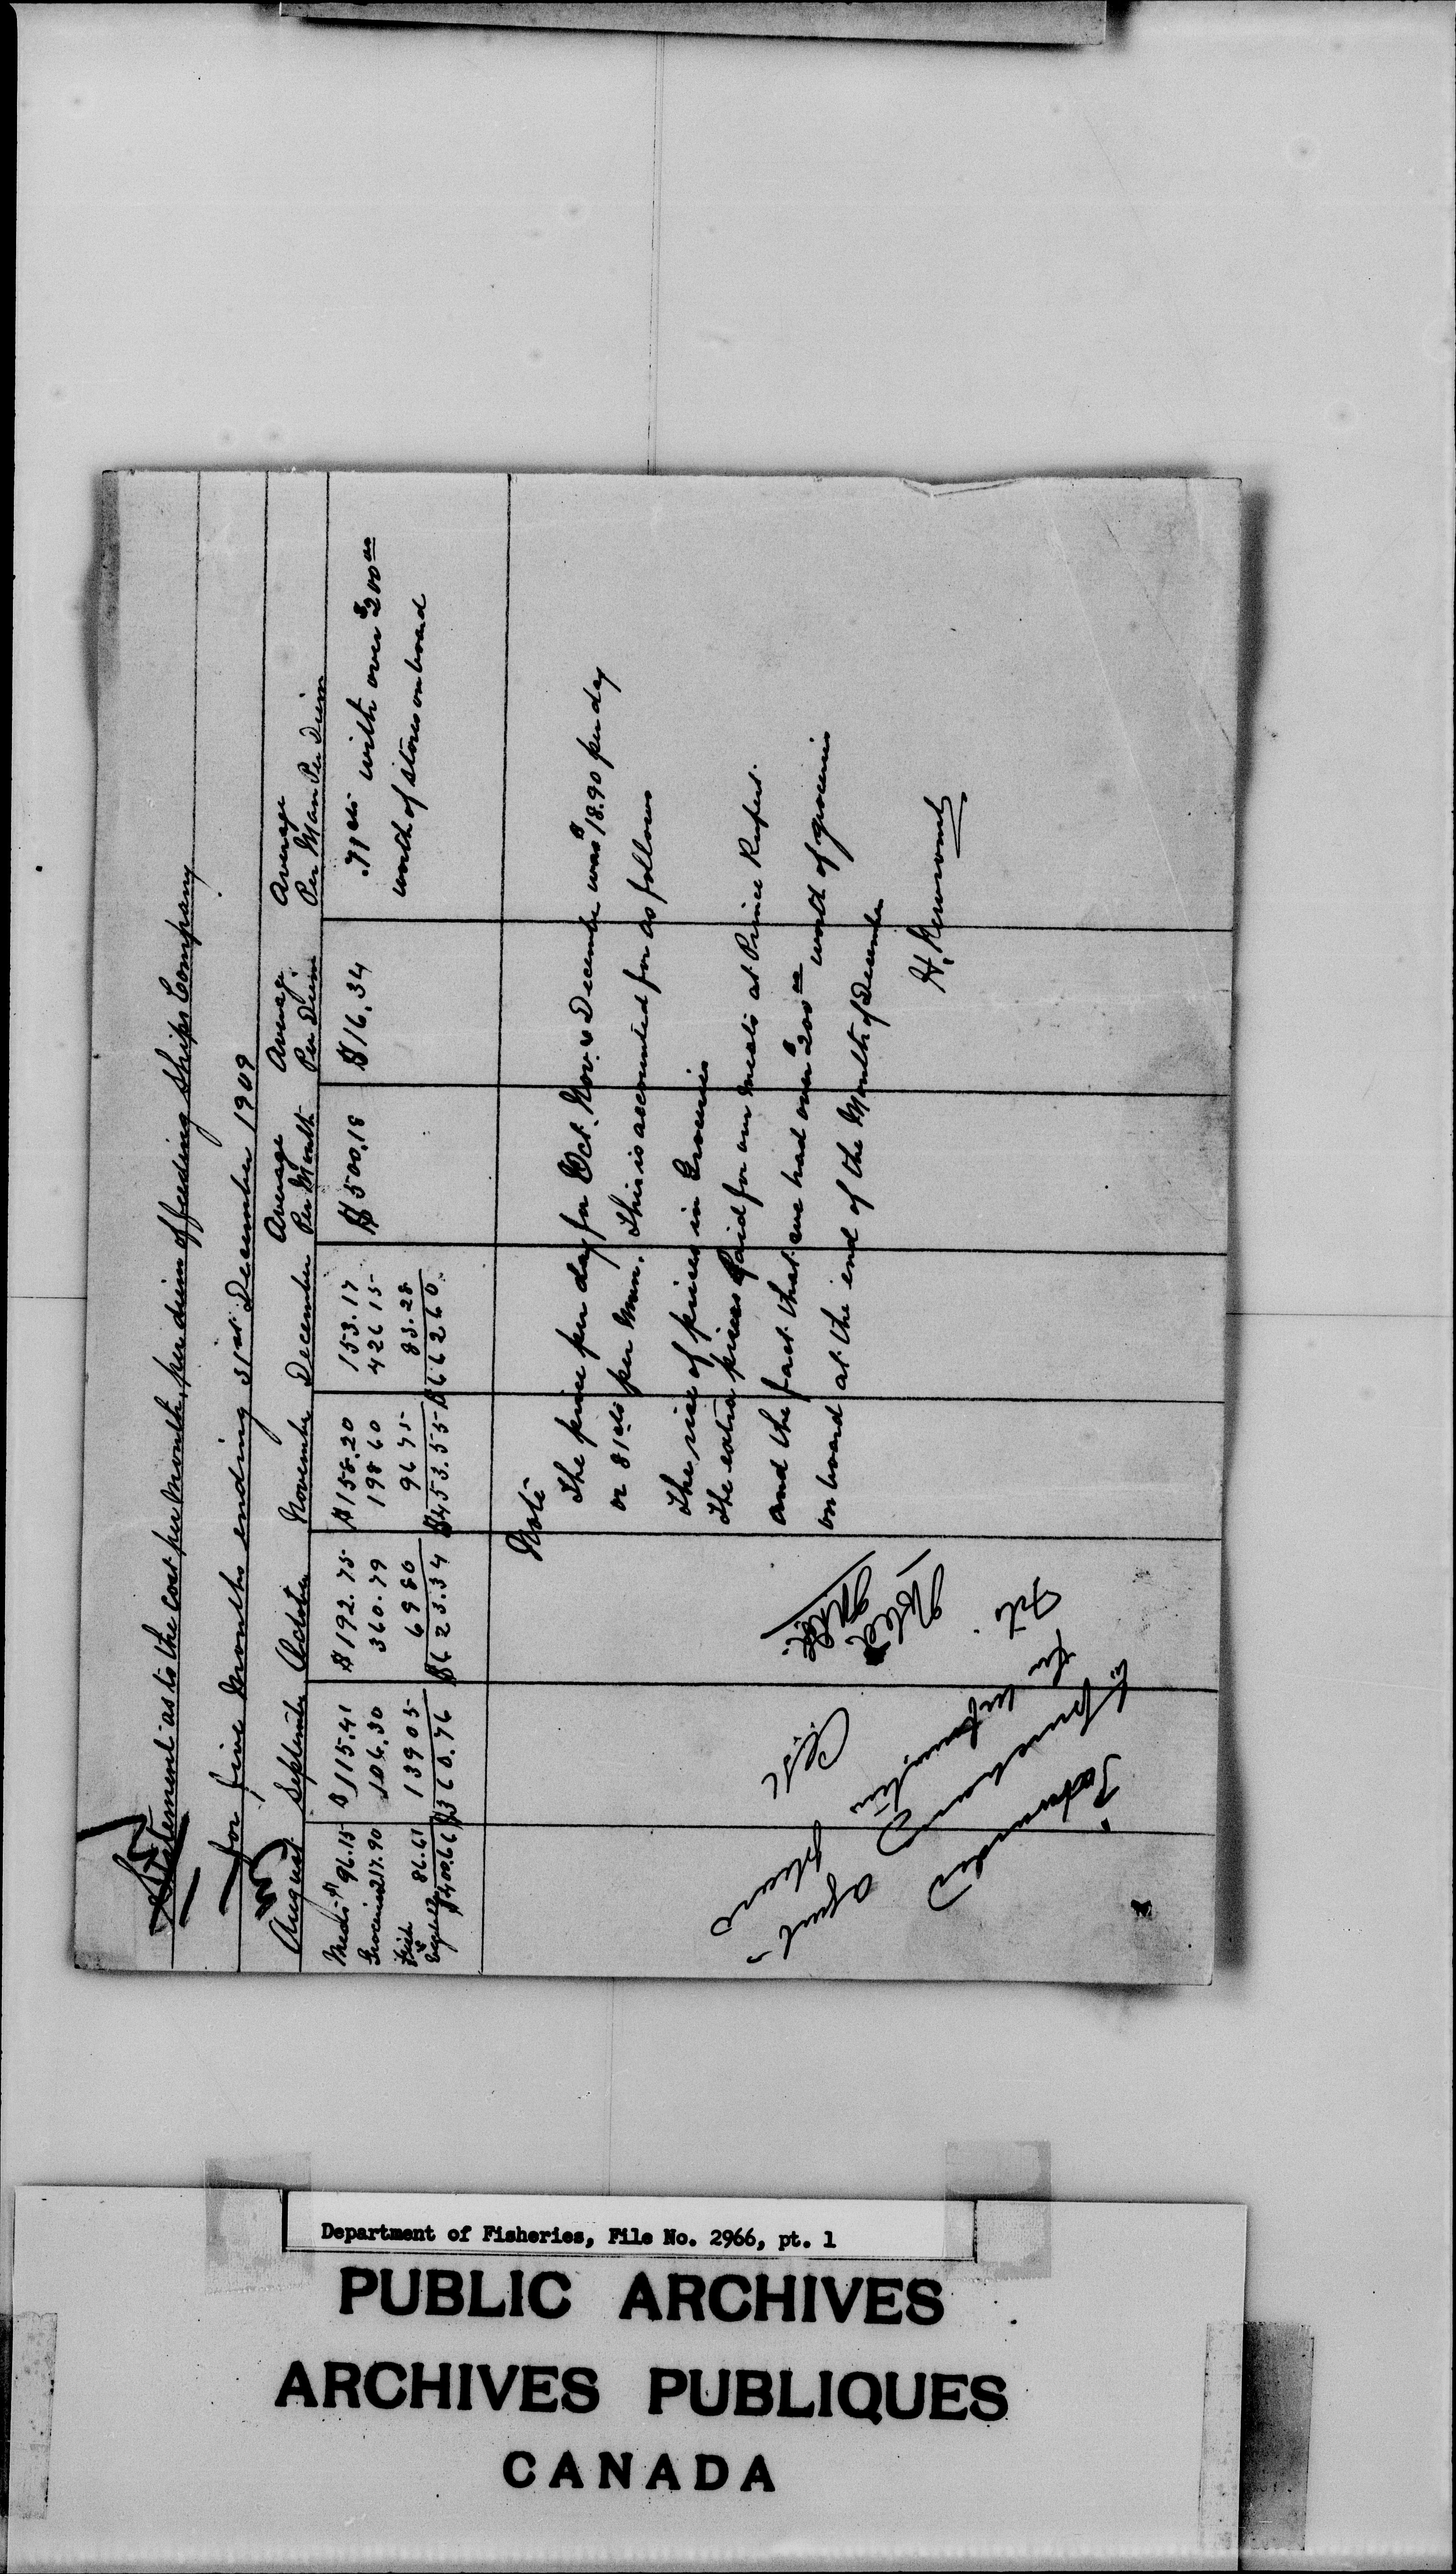 Statement as to the cost per month, per diem of feeding Ships Company
for five months ending 31st December 1909
August September October November December Average Per Month Average Per Diem Average Per Man Per Diem
Meats $96.15 $115.41 $192.75 $158.20 153.17 $500.18 $16.34 .71 cts with over $200.00
Groceries 217.90 106.30 360.79 198 60 426 15 worth of stores on board
Fish & Vegetables 86.61 139 05 69 80 96 75 83.28
$400.66 $360.76 $623.34 $453.55 $662 60
Note
The price per day for Oct. Nov. & December was $18.90 per day
or 81 cts per man. This is accounted for as follows
The rise of prices in Groceries
The extra prices paid for our meats at Prince Rupert.
and the fact that we had over $200.00 worth of groceries
on board at the end of the Month of December
H. Newcomb
Noted
File
Forwarded
to purchasing agent
for information
please
Department of Fisheries, File No. 2966, pt. 1
PUBLIC ARCHIVES
ARCHIVES PUBLIQUES
CANADA